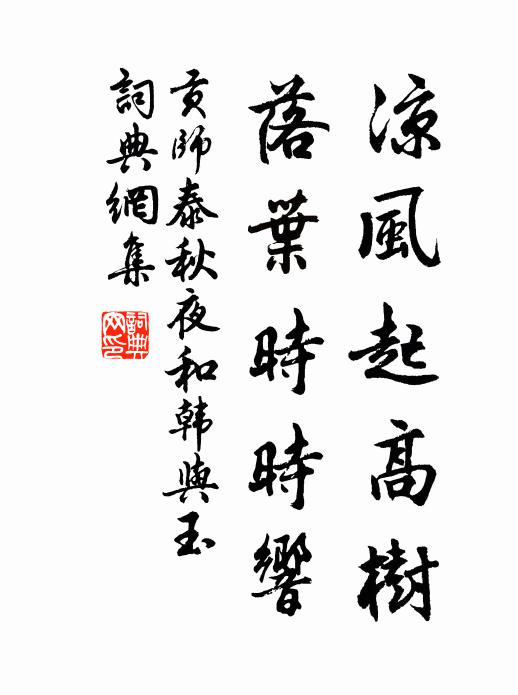 涼風起高樹
落葉時時響
贡師泰秋夜和韩與玉
詞典網集
詞典网印